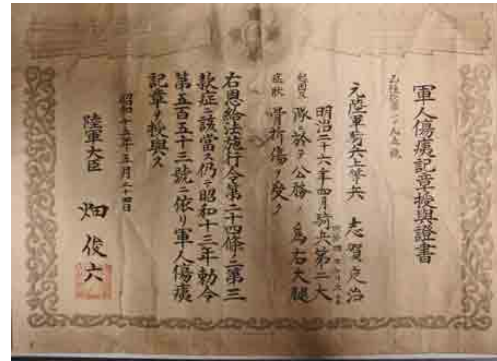 軍人傷痍記章授與證書
元陸軍騎兵上等兵 志賀克治
明治二十六年四月騎兵第二大
隊ニ於テ公務ノ爲右大腿
起因及
症狀
骨折傷ヲ受ク
右恩給法施行令第二十四條ニ第三
款症ニ該當ス仍テ昭和十三年勅令
第五百五十三號ニ依リ軍人傷痍
記章ヲ授與ス
昭和十五年五月二十四日
陸軍大臣 畑俊六